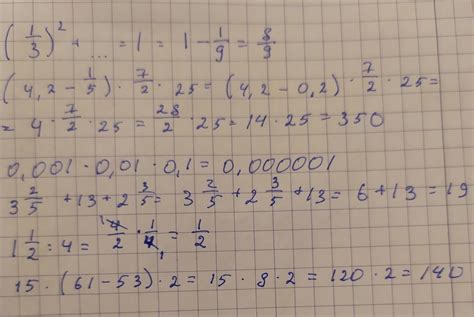 (1/3)² + ... = 1 = 1 - 1/9 = 8/9
(4,2 - 1/5) · 7/2 · 25 = (4,2 - 0,2) · 7/2 · 25 =
= 4 · 7/2 · 25 = 28/2 · 25 = 14 · 25 = 350
0,001 · 0,01 · 0,1 = 0,000001
3 2/5 + 13 + 2 3/5 = 3 2/5 + 2 3/5 + 13 = 6 + 13 = 19
1 1/2 : 4 = 4/2 · 1/4 = 1/2
15 · (61 - 53) · 2 = 15 · 8 · 2 = 120 · 2 = 140